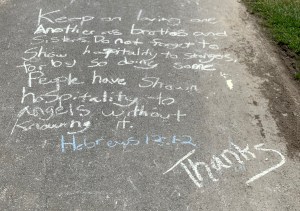 Keep on loving one
Another as brothers and
sisters Do not forget to
Show hospitality to strangers,
for by so doing some
People have Shown
hospitality to
angels without
knowing it.
Hebreys 13:1-2
Thanks